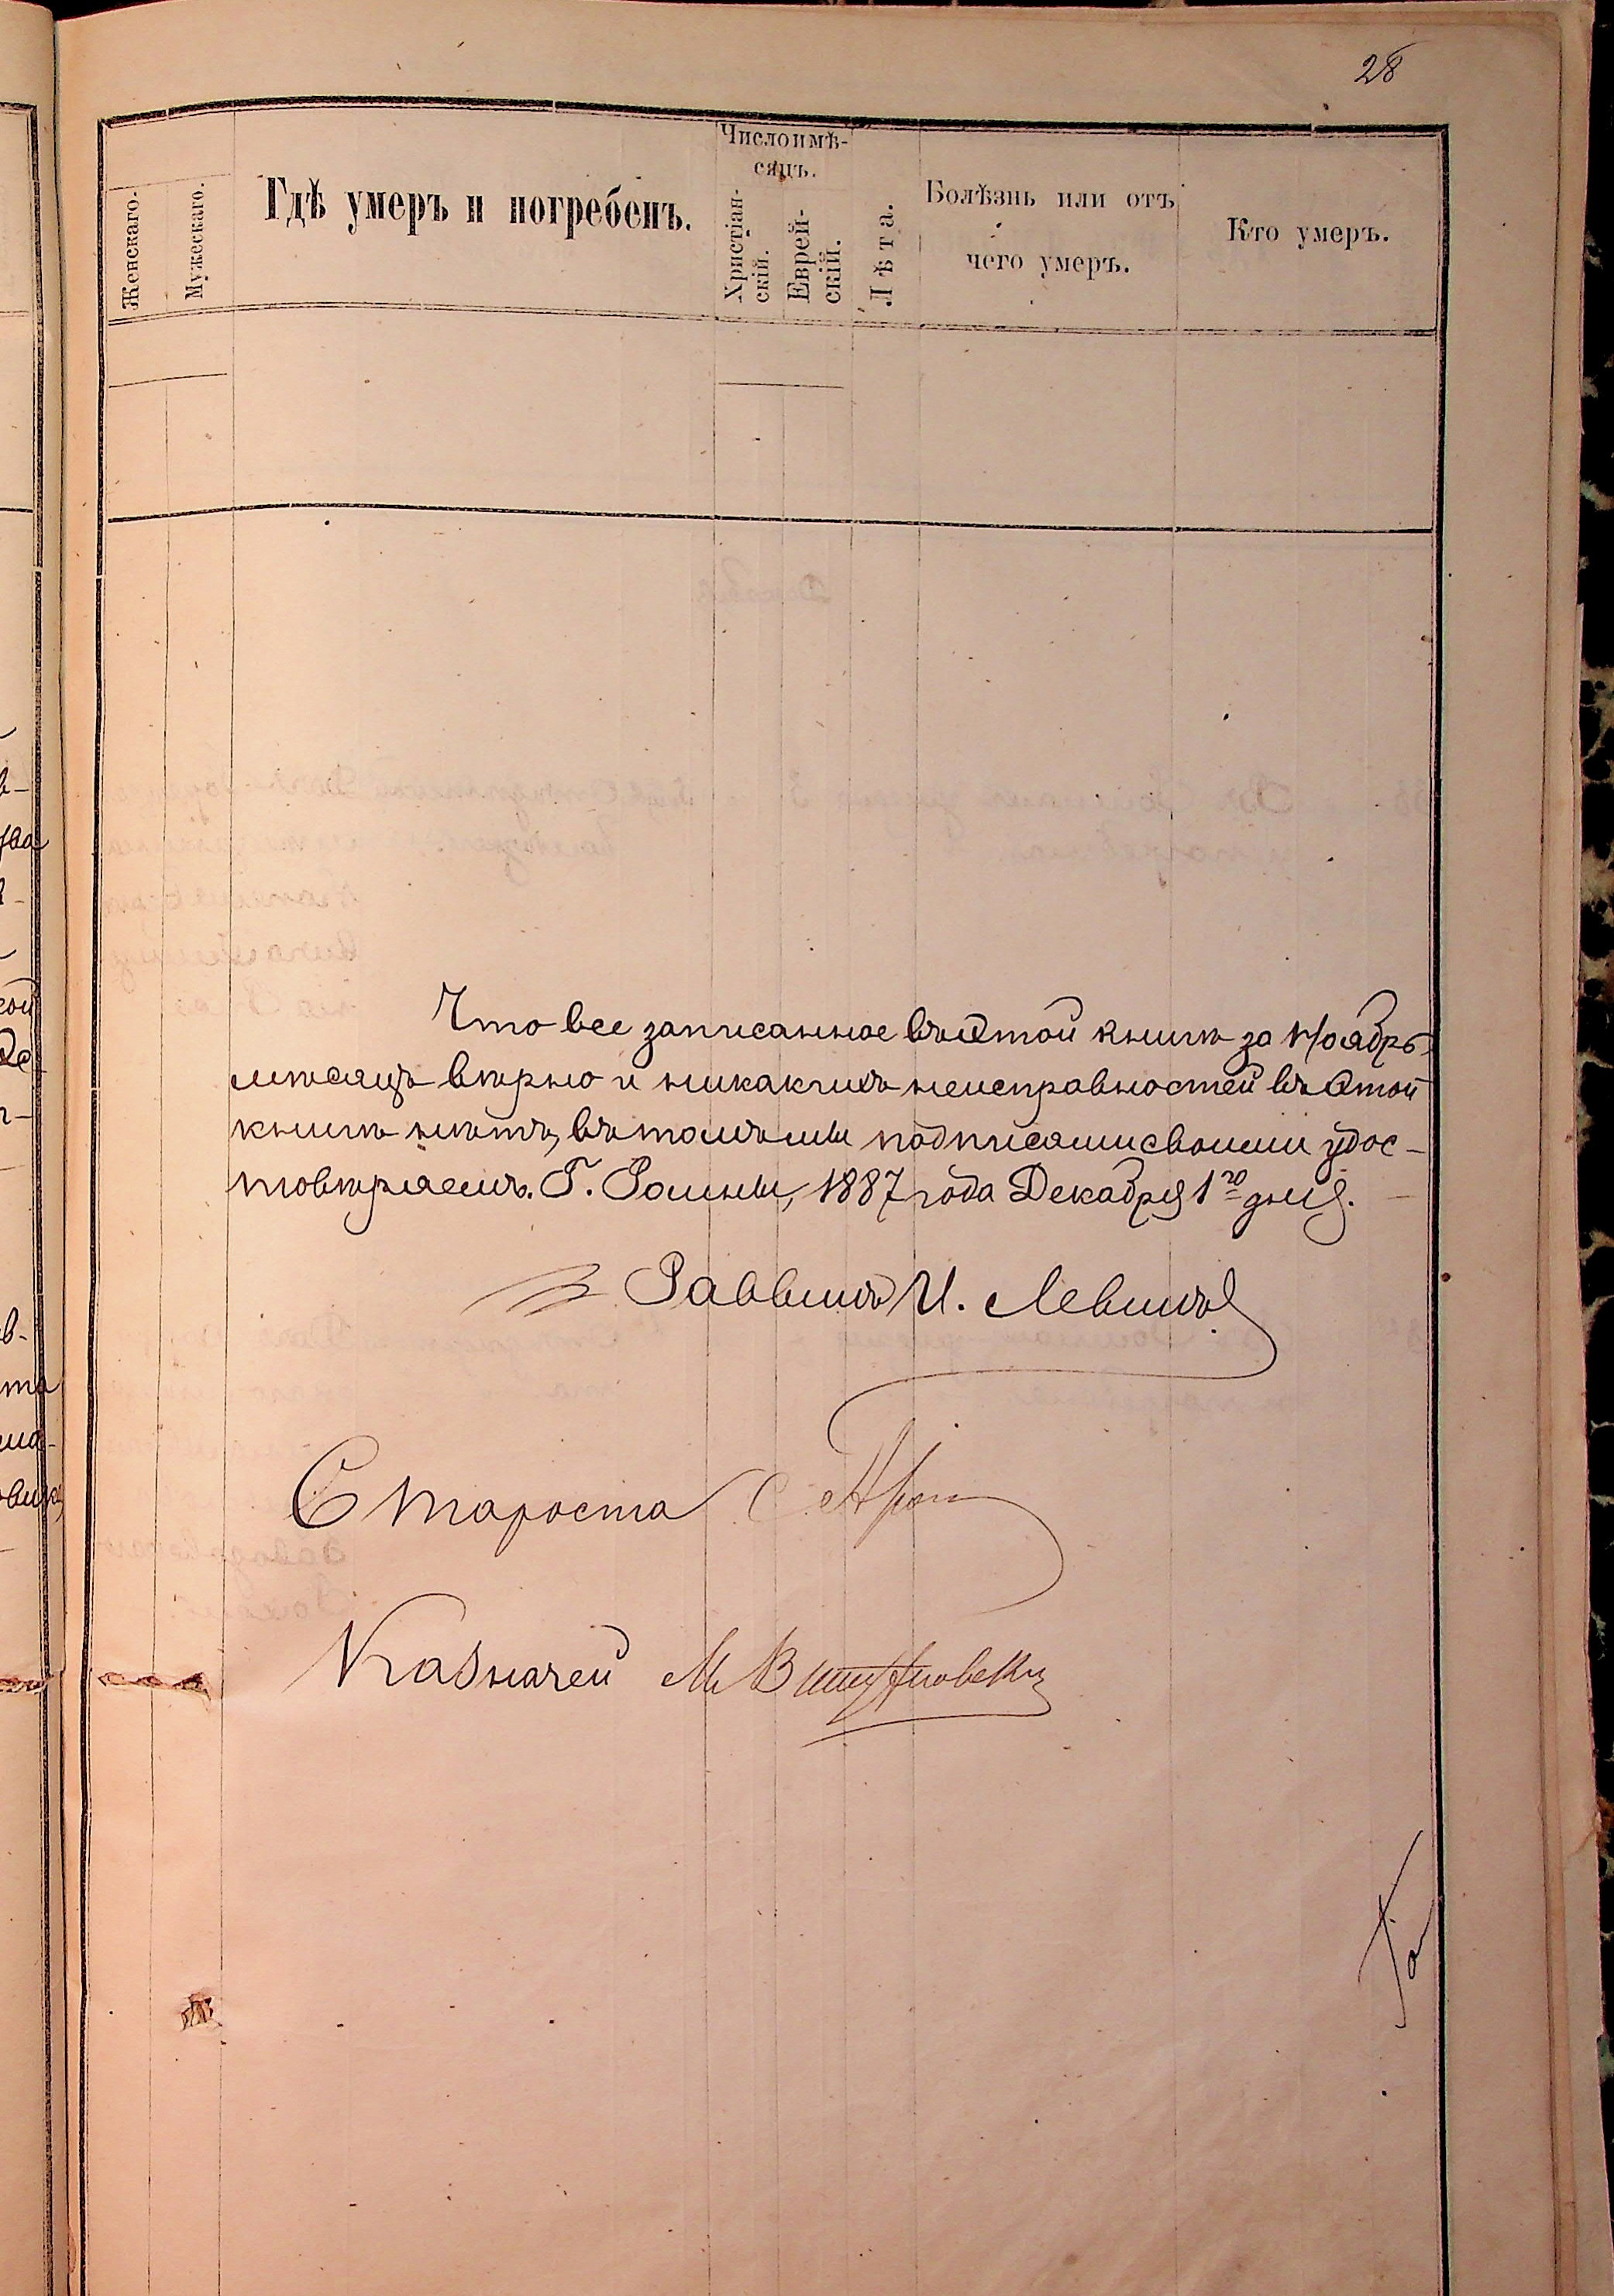 28
Число и мѣ-
сяцъ.
Женскаго.
Мужескаго.
Гдѣ умеръ и погребенъ.
Христіан-
скій.
Еврей-
скій.
Лѣта.
Болѣзнь или отъ
чего умеръ.
Кто умеръ.
Что все записанное въ этой книгѣ за Ноябрь
мѣсяцъ вѣрно и никакихъ неисправностей въ этой
книгѣ нѣтъ, въ томъ мы подписями своими удос-
товѣряемъ. Г. Ромны, 1887 года Декабря 1го дня.
Раввинъ И. Левинъ
Староста С.
Казначей М